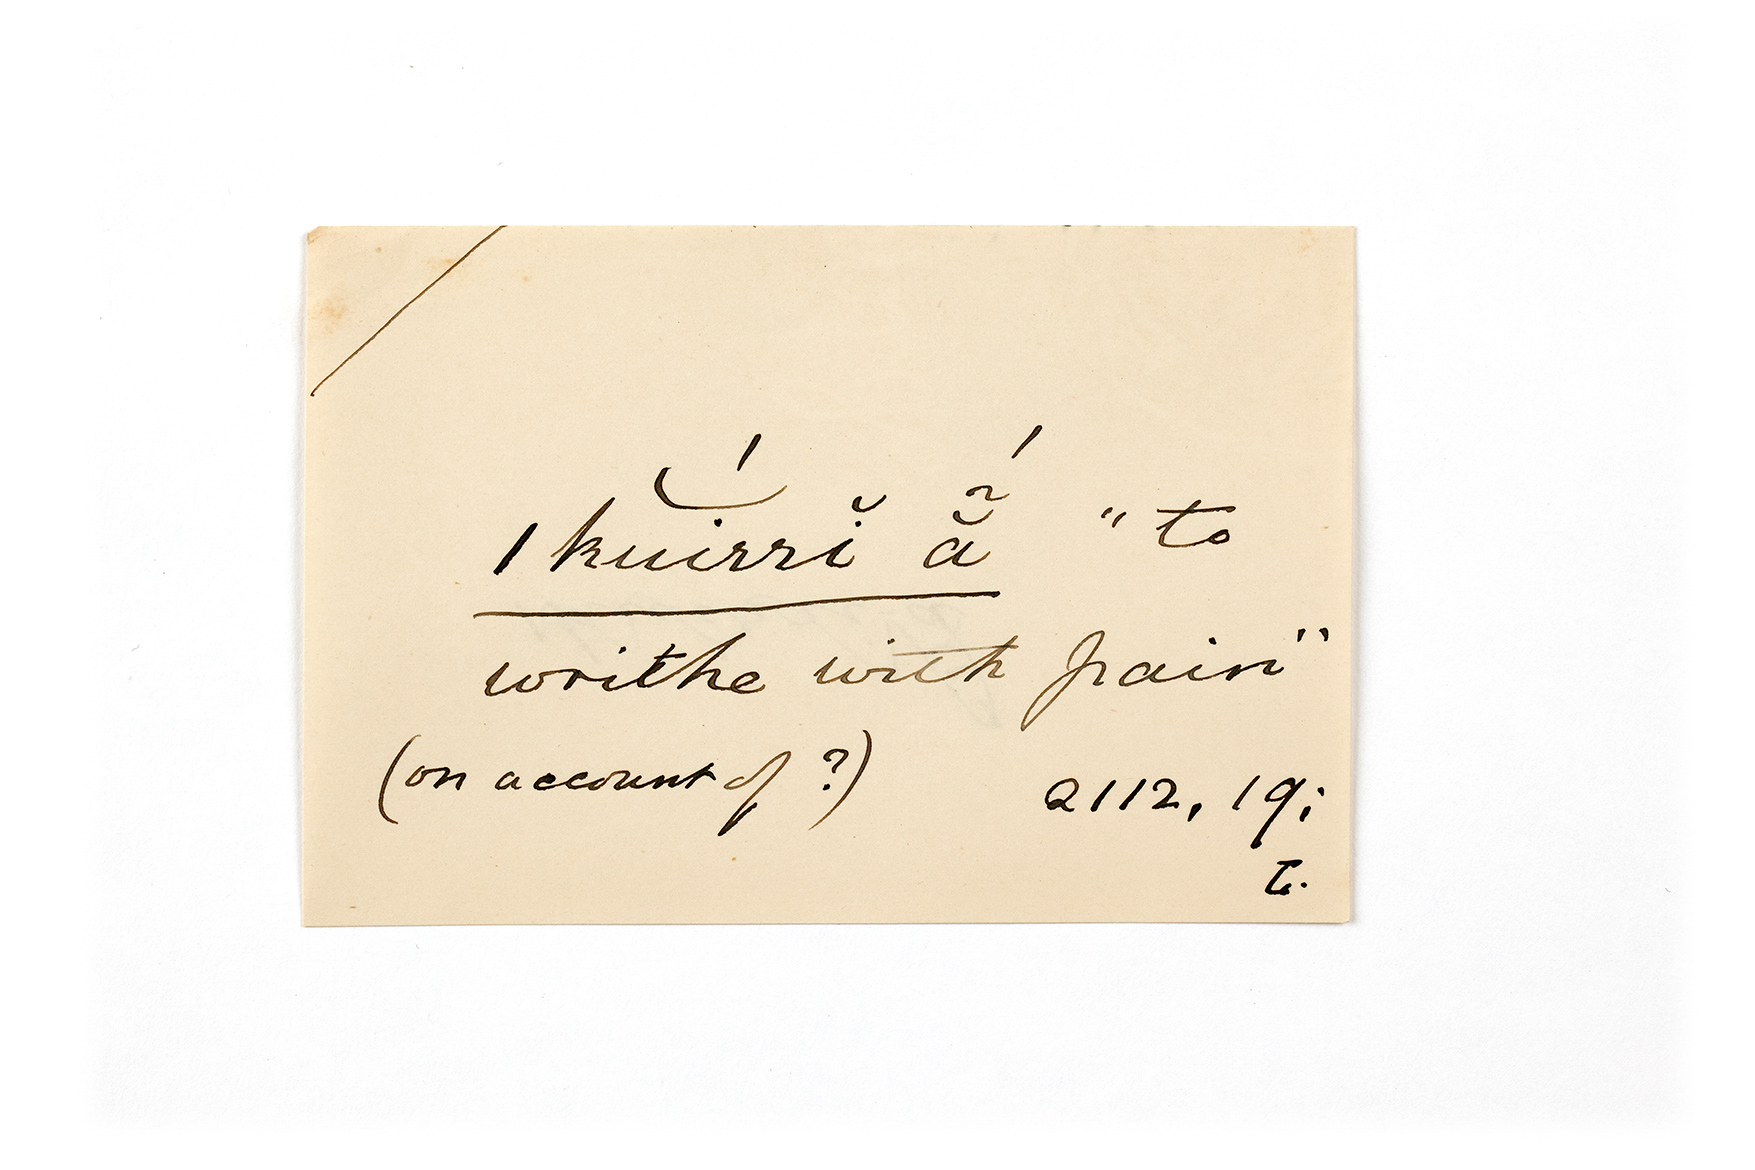 | ku͝írrĭ ã̆́ "to
writhe with pain"
(on account of ?) 2112, 19;